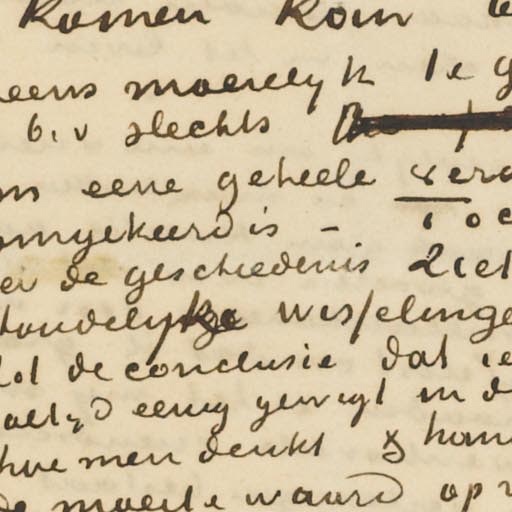 komen kom
eens moeielyk te g
b.v slechts
eene geheele
omgekeerd is - Toc
de geschiedenis ziet
houdelyke wisselinge
tot de conclusie dat ie
altyd eenig gewigt in d
hoe men denkt &
de moeite waard op